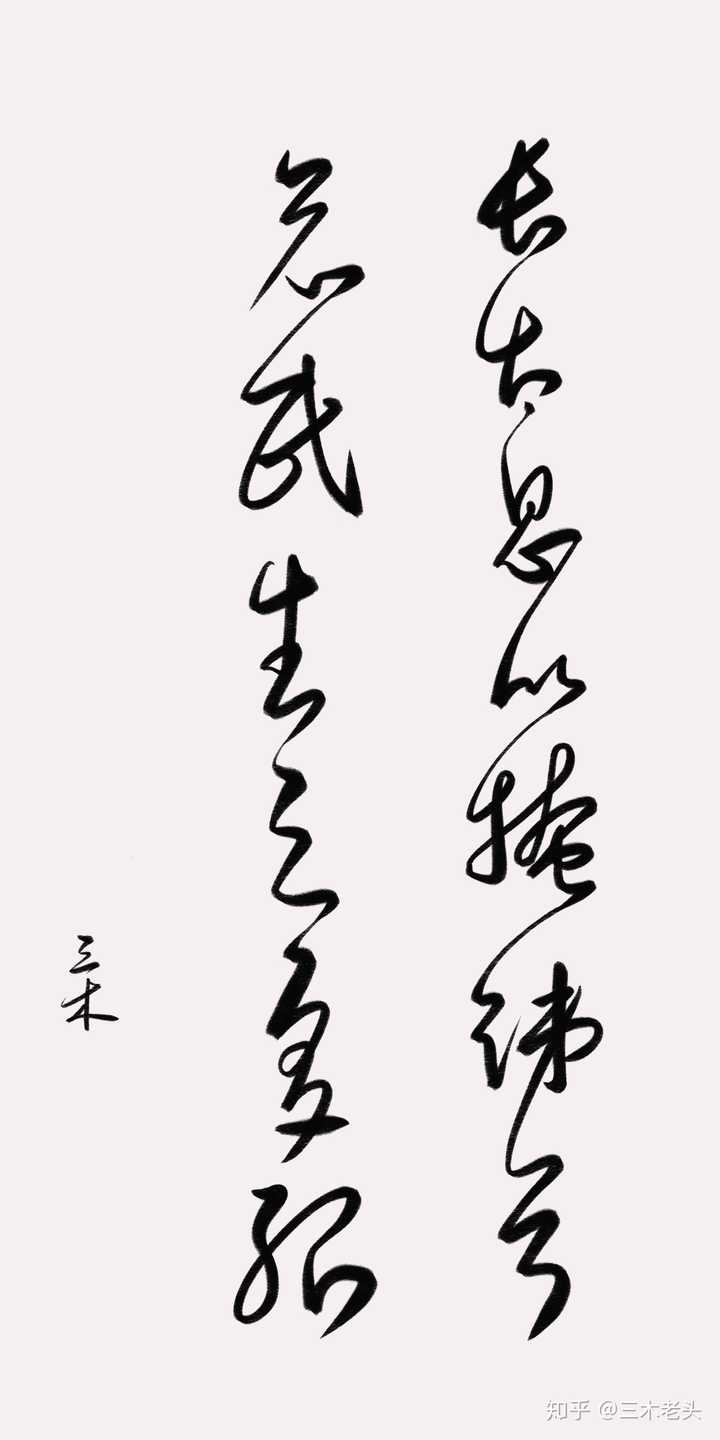 长太息以掩涕兮
哀民生之多艰
三木
知乎 @三木老头